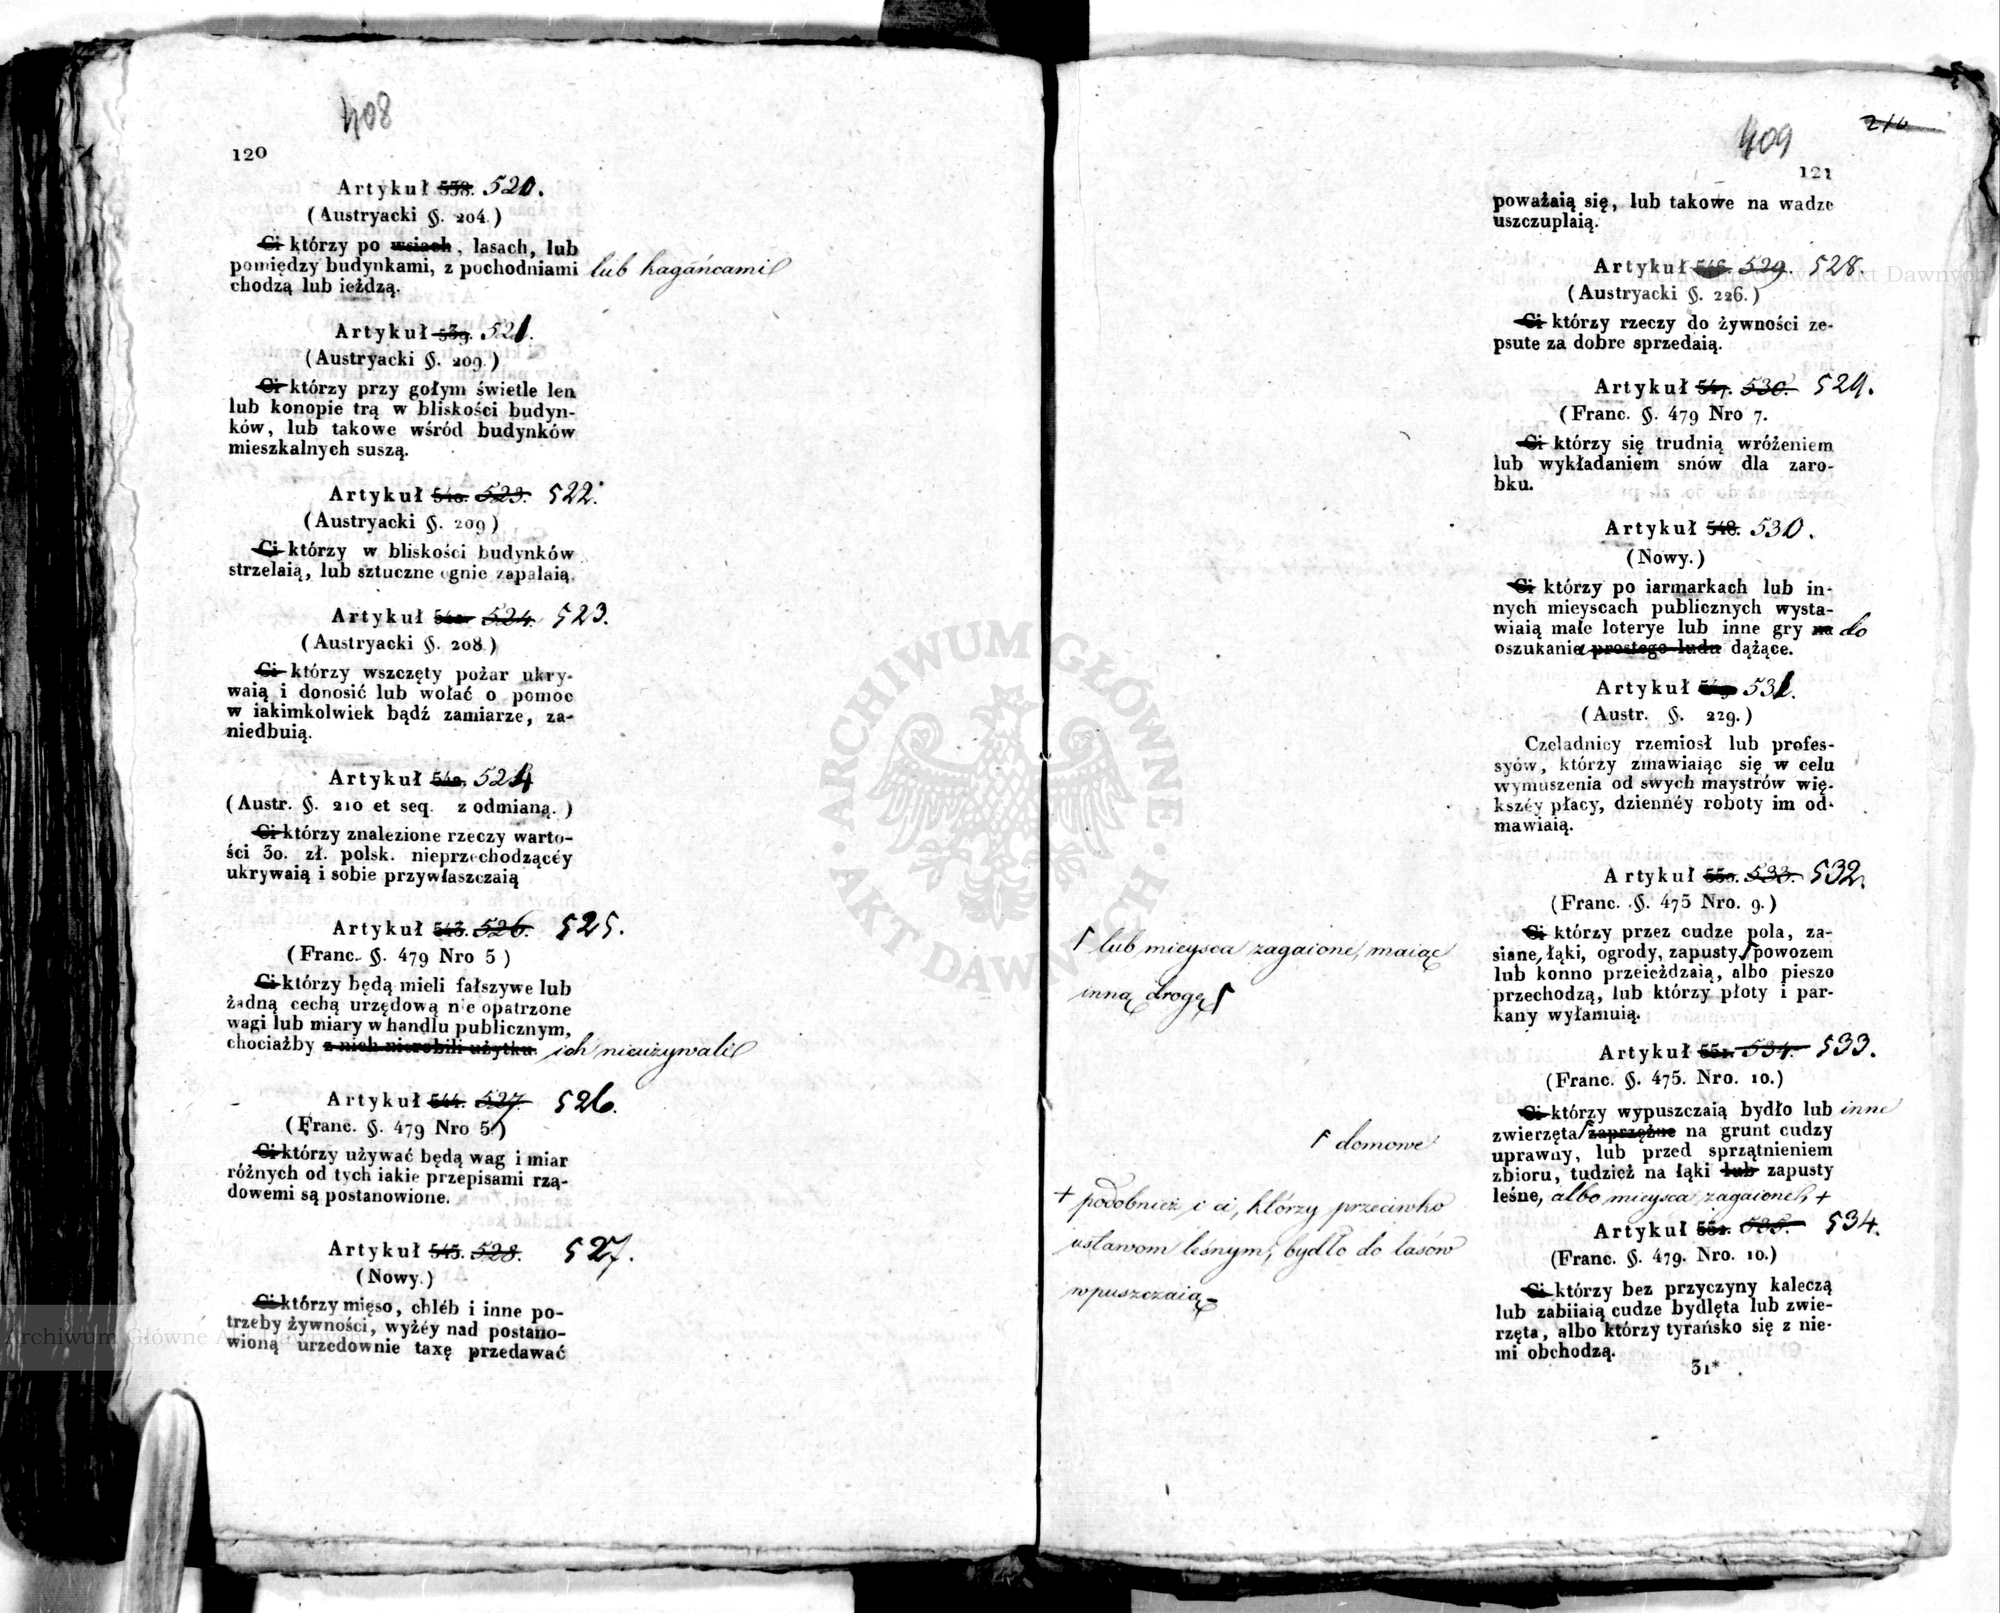 408
120
Artykuł 538. 520.
(Austryacki §. 204.)
Ci którzy po wsiach, lasach, lub
pomiędzy budynkami, z pochodniami lub kagańcami
chodzą lub ieżdzą.
Artykuł 539. 521.
(Austryacki §. 209.)
Ci którzy przy gołym świetle len
lub konopie trą w bliskości budyn-
ków, lub takowe wśród budynków
mieszkalnych suszą.
Artykuł 540. 523. 522.
(Austryacki §. 209)
Ci którzy w bliskości budynków
strzelaią, lub sztuczne ognie zapalaią.
Artykuł 524. 523.
(Austryacki §. 208.)
Ci którzy wszczęty pożar ukry-
waią i donosić lub wołać o pomoc
w iakimkolwiek bądź zamiarze, za-
niedbuią.
Artykuł 542. 524
(Austr. §. 210 et seq. z odmianą.)
Ci którzy znalezione rzeczy warto-
ści 30. zł. polsk. nieprzechodzącéy
ukrywaią i sobie przywłaszczaią
Artykuł 543. 526. 525.
(Franc. §. 479 Nro 5)
Ci którzy będą mieli fałszywe lub
żadną cechą urzędową nie opatrzone
wagi lub miary w handlu publicznym,
chociażby z nich nierobili użytku. ich nieużywali
Artykuł 544. 527. 526.
(Franc. §. 479 Nro 5)
Ci którzy używać będą wag i miar
różnych od tych iakie przepisami rzą-
dowemi są postanowione.
Artykuł 545. 528. 527.
(Nowy.)
Ci którzy mięso, chléb i inne po-
trzeby żywności, wyżéy nad postano-
wioną urzedownie taxę przedawać
409
210
121
poważaią się, lub takowe na wadze
uszczuplaią.
Artykuł 546. 529. 528.
(Austryacki §. 226.)
Ci którzy rzeczy do żywności ze-
psute za dobre sprzedaią.
Artykuł 547. 530. 529.
(Franc. §. 479 Nro 7.
Ci którzy się trudnią wróżeniem
lub wykładaniem snów dla zaro-
bku.
Artykuł 548. 530.
(Nowy.)
Ci którzy po iarmarkach lub in-
nych mieyscach publicznych wysta-
wiaią małe loterye lub inne gry na do
oszukania prostego ludu dążące.
Artykuł 549. 531.
(Austr. §. 229.)
Czeladnicy rzemiosł lub profes-
syów, którzy zmawiaiąc się w celu
wymuszenia od swych maystrów wię-
kszéy płacy, dziennéy roboty im od-
mawiaią.
Artykuł 550. 533. 532.
(Franc. §. 475 Nro. 9.)
Ci którzy przez cudze pola, za-
siane, łąki, ogrody, zapusty powozem
lub konno przeieżdzaią, albo pieszo
przechodzą, lub którzy płoty i par-
kany wyłamuią.
lub mieysca zagaione, maiąc
inną drogę
Artykuł 551. 534. 533.
(Franc. §. 475. Nro. 10.)
Ci którzy wypuszczaią bydło lub inne
zwierzęta zaprzężne na grunt cudzy
uprawny, lub przed sprzątnieniem
zbioru, tudzież na łąki lub zapusty
leśne, albo mieysca zagaione, +
domowe
+ podobnież i ci, którzy przeciwko
ustawom leśnym, bydło do lasów
wpuszczaią
Artykuł 552. 535. 534.
(Franc. §. 479. Nro. 10.)
Ci którzy bez przyczyny kaleczą
lub zabiiaią cudze bydlęta lub zwie-
rzęta, albo którzy tyrańsko się z nie-
mi obchodzą.
31*
ARCHIWUM GŁÓWNE AKT DAWNYCH
Archiwum Główne Akt Dawnych
Archiwum Główne Akt Dawnych